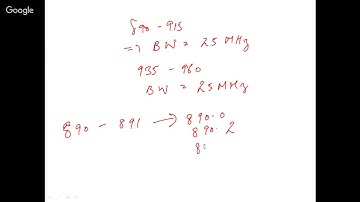 Google
890 - 915
=> BW = 25 MHz
935 - 960
BW = 25 MHz
890 - 891 → 890.0
890.2
8